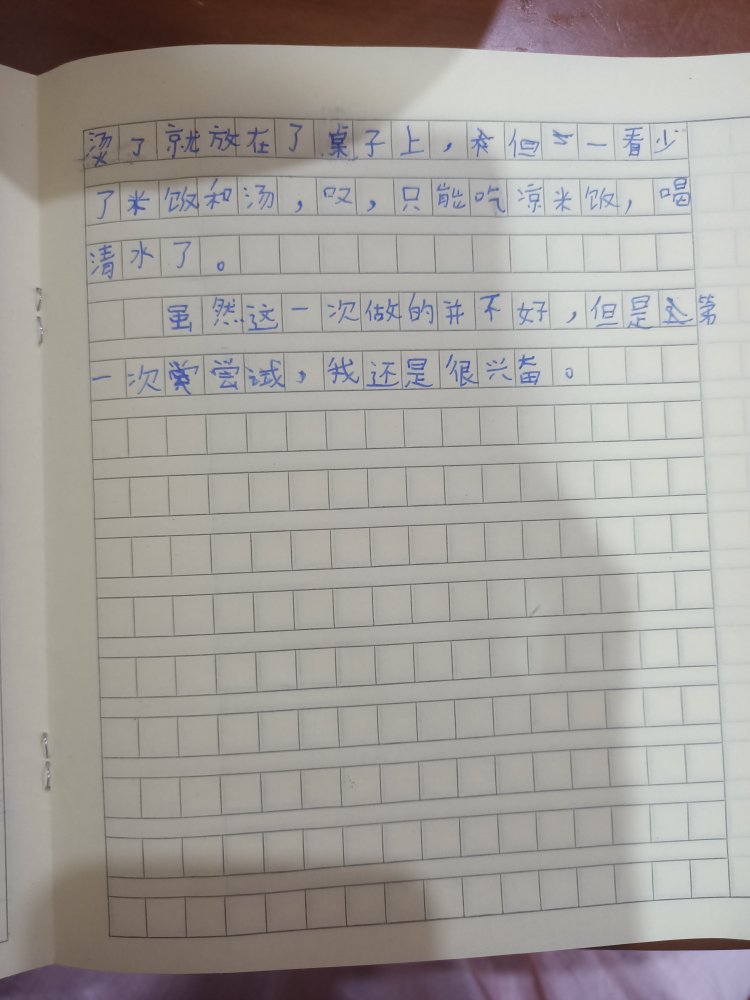 烫了就放在了桌子上，但一看少
了米饭和汤，叹，只能吃凉米饭，喝
清水了。
虽然这一次做的并不好，但是第
一次尝试，我还是很兴奋。